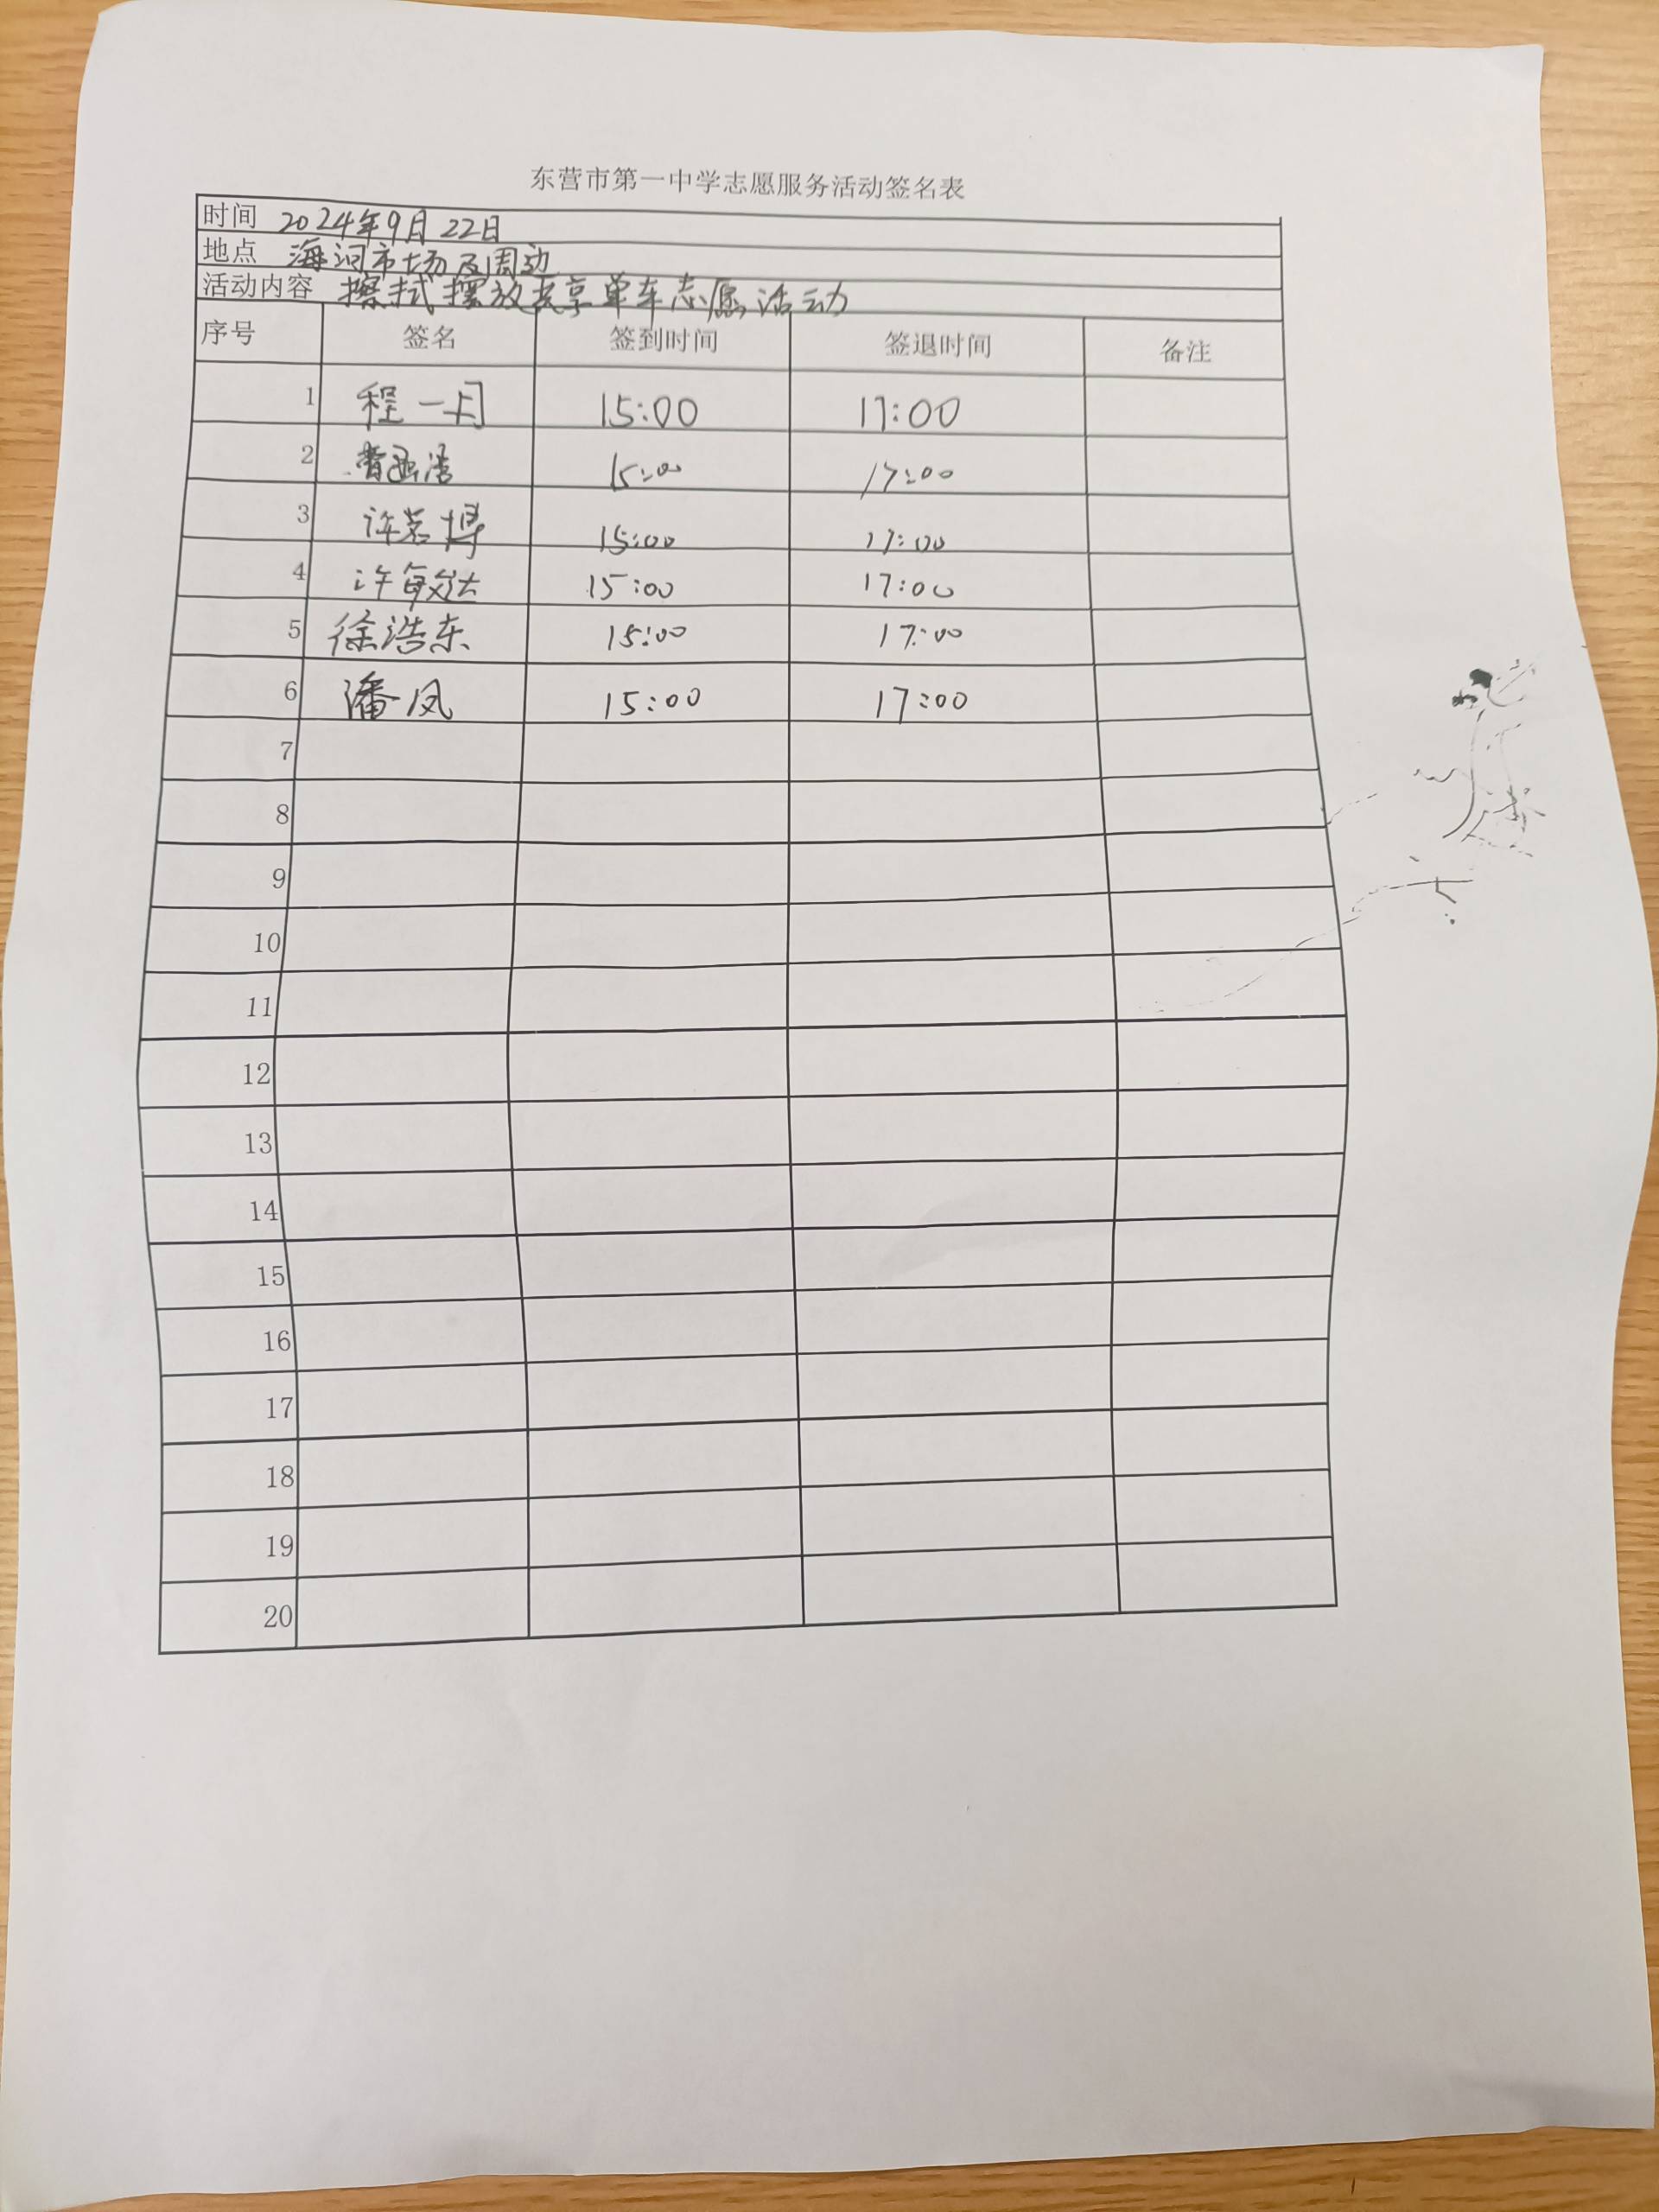 东营市第一中学志愿服务活动签名表
时间 2024年9月22日
地点 海河市场及周边
活动内容 擦拭摆放共享单车志愿活动
序号 签名 签到时间 签退时间 备注
1 程一 15:00 17:00
2 15:00 17:00
3 许茗博 15:00 17:00
4 许 15:00 17:00
5 徐浩东 15:00 17:00
6 潘凤 15:00 17:00
7
8
9
10
11
12
13
14
15
16
17
18
19
20